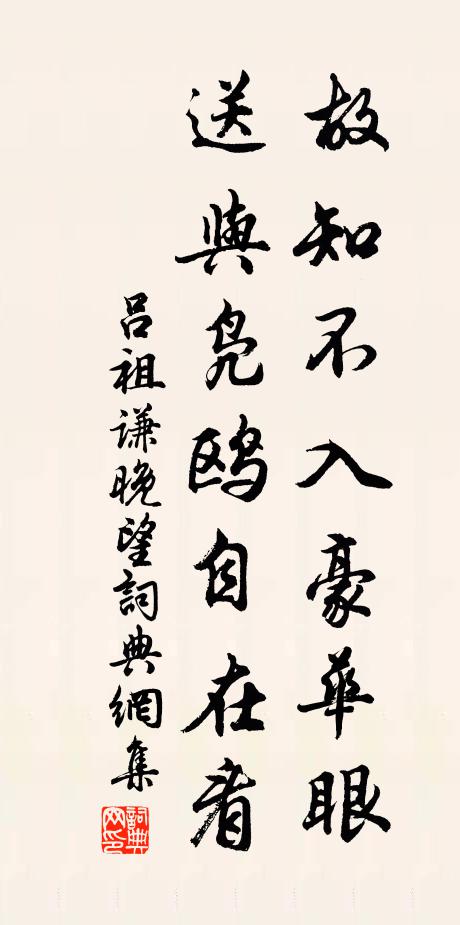 故知不入豪華眼
送與鳧鷗自在看
呂祖謙晚望詞典網集
詞典網印